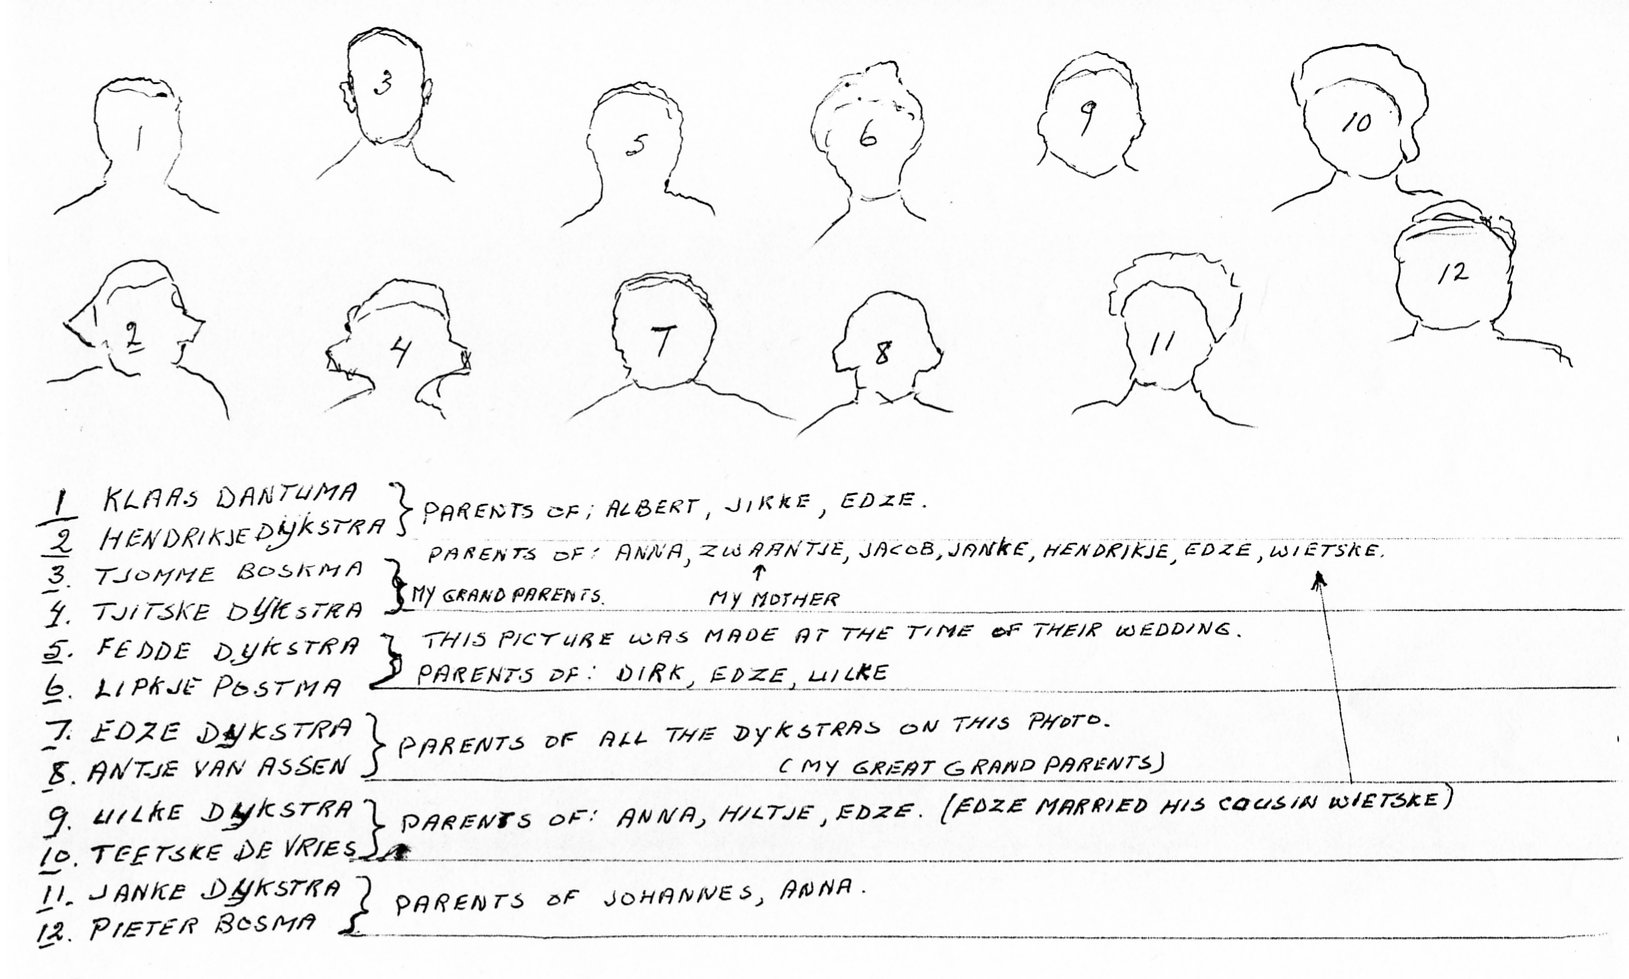 1
3
5
6
9
10
2
4
7
8
11
12
1 KLAAS DANTUMA
2 HENDRIKJE DYKSTRA
PARENTS OF; ALBERT, JIKKE, EDZE.
3. TJOMME BOSKMA
4. TJITSKE DYKSTRA
PARENTS OF: ANNA, ZWAANTJE, JACOB, JANKE, HENDRIKJE, EDZE, WIETSKE.
MY GRANDPARENTS.
MY MOTHER
5. FEDDE DYKSTRA
6. LIPKJE POSTMA
THIS PICTURE WAS MADE AT THE TIME OF THEIR WEDDING.
PARENTS OF: DIRK, EDZE, UILKE
7. EDZE DYKSTRA
8. ANTJE VAN ASSEN
PARENTS OF ALL THE DYKSTRAS ON THIS PHOTO.
(MY GREAT GRANDPARENTS)
9. UILKE DYKSTRA
10. TEETSKE DE VRIES
PARENTS OF: ANNA, HILTJE, EDZE. (EDZE MARRIED HIS COUSIN WIETSKE)
11. JANKE DYKSTRA
12. PIETER BOSMA
PARENTS OF JOHANNES, ANNA.